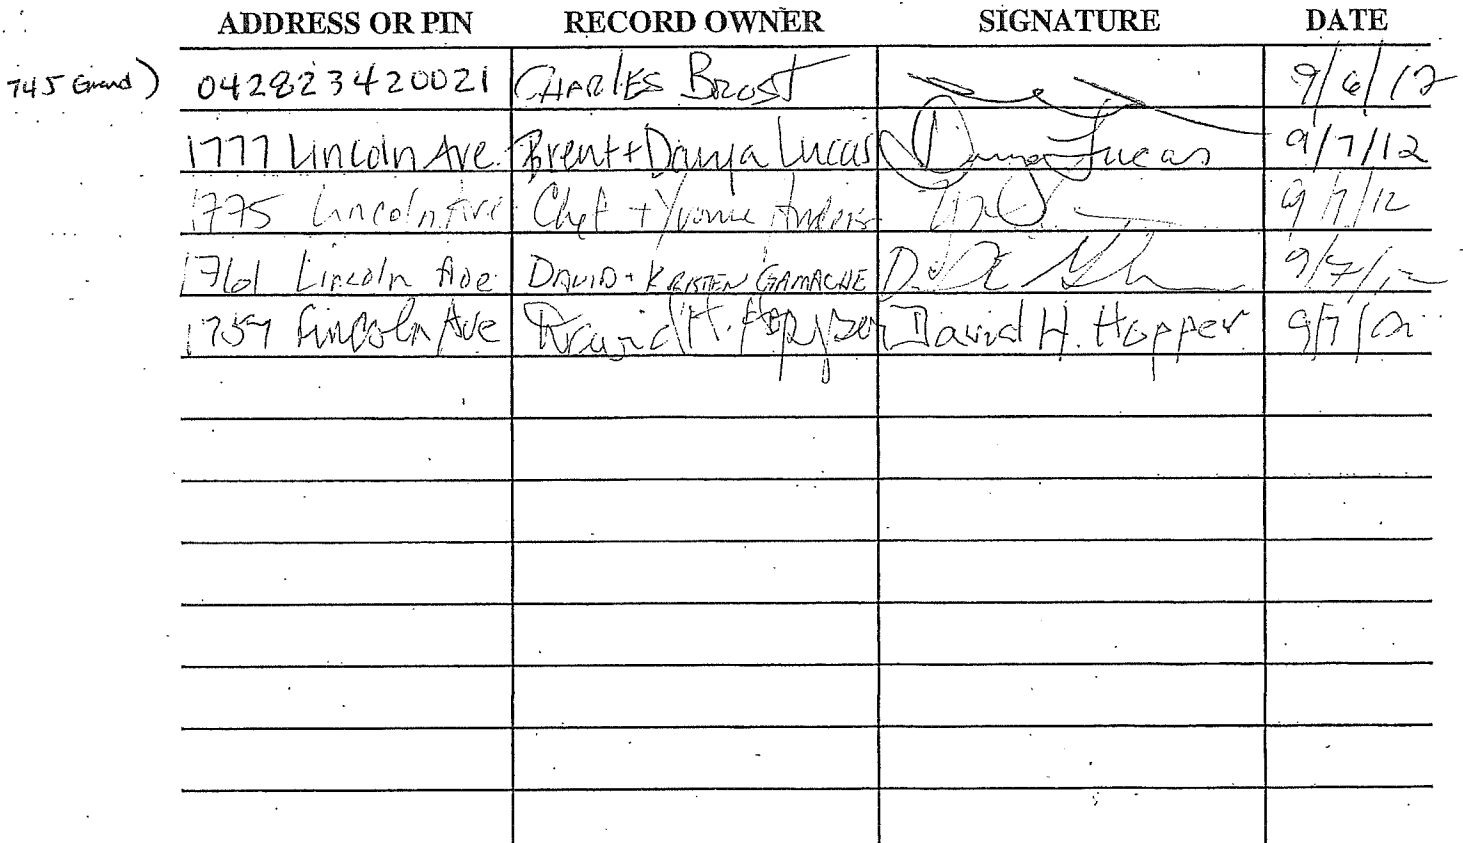 ADDRESS OR PIN RECORD OWNER SIGNATURE DATE
745 Grand) 042823420021 CHARLES BROST 9/6/12
1777 Lincoln Ave. Brent + Danya Lucas Danya Lucas 9/7/12
1775 Lincoln Ave Chet + Yvonne 9/7/12
1761 Lincoln Ave DAVID + KRISTEN GAMACHE 9/7/12
1759 Lincoln Ave David H. Hopper David H. Hopper 9/7/12